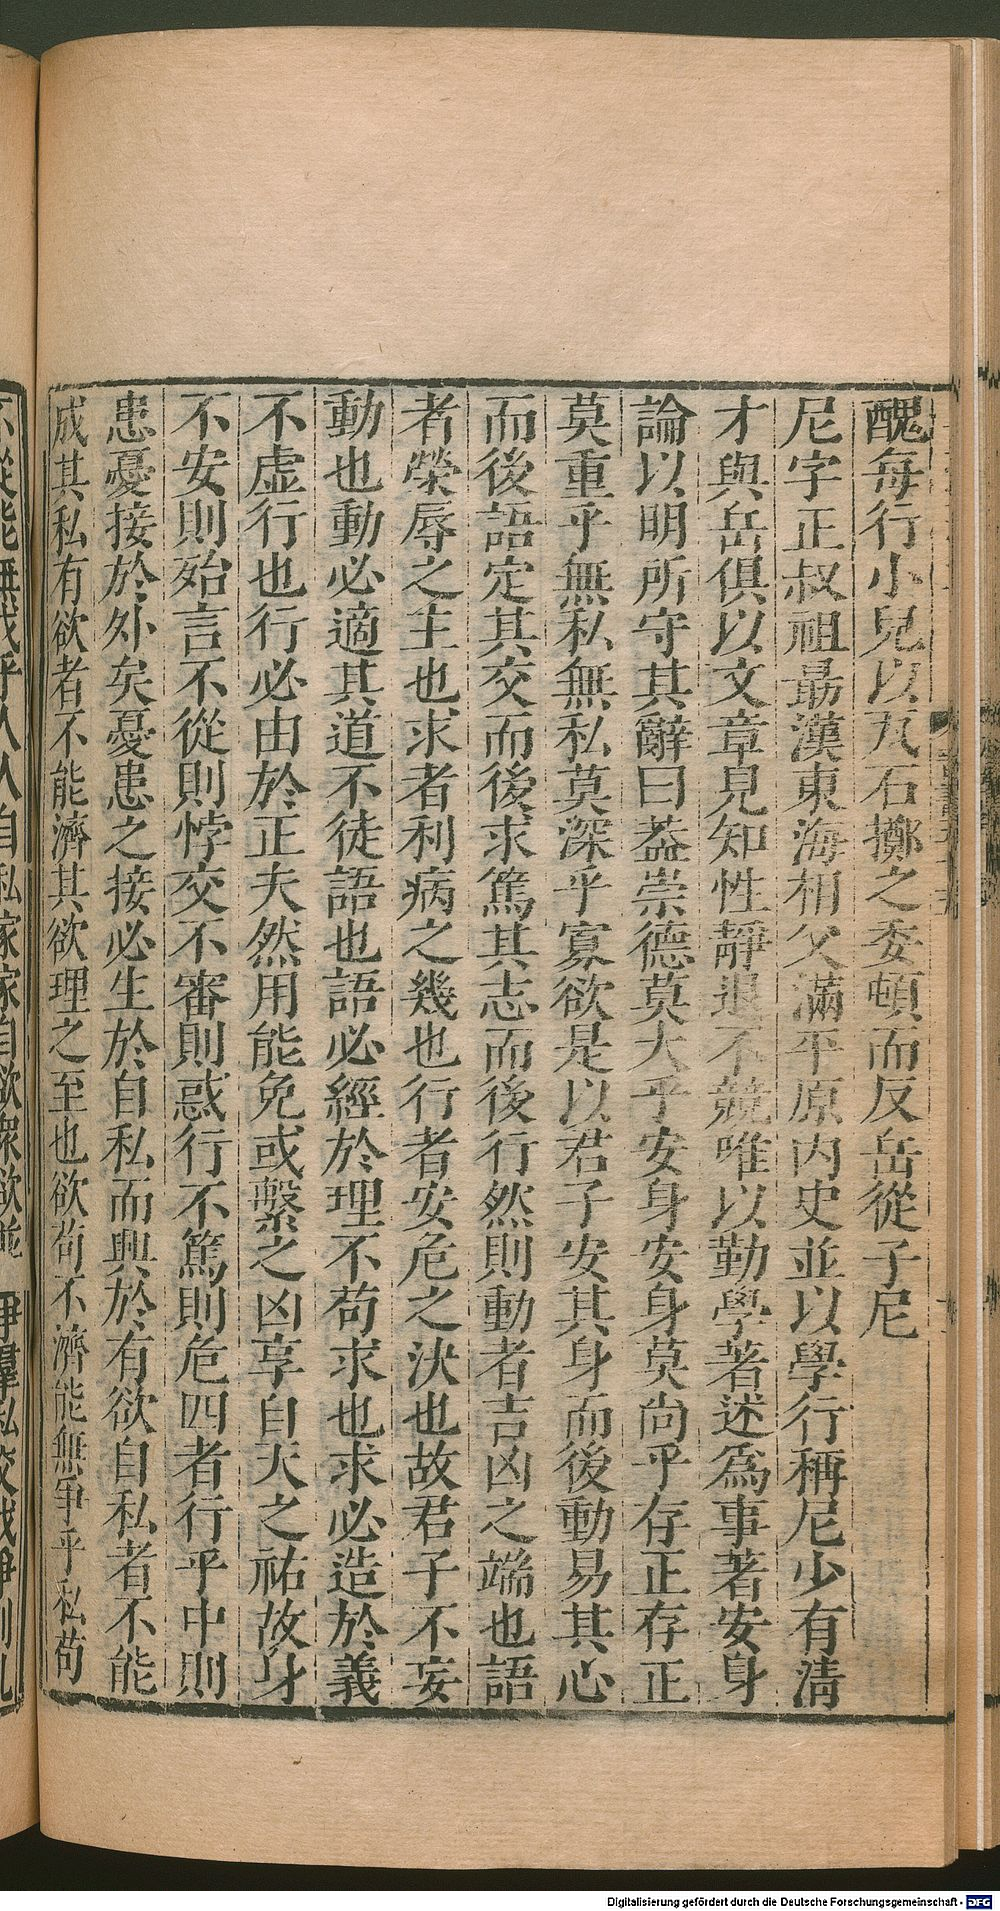 醜每行小兒以瓦石擲之委頓而反岳從子尼
尼字正叔祖最漢東海相父滿平原内史並以學行稱尼少有清
才與岳俱以文章見知性靜退不競唯以勤學著述爲事著安身
論以明所守其辭曰葢崇德莫大乎安身安身莫尚乎存正存正
莫重乎無私無私莫深乎寡欲是以君子安其身而後動易其心
而後語定其交而後求篤其志而後行然則動者吉凶之端也語
者榮辱之主也求者利病之幾也行者安危之決也故君子不妄
動也動必適其道不徒語也語必經於理不苟求也求必造於義
不虛行也行必由於正夫然用能免或繫之凶享自天之祐故身
不安則殆言不從則悖交不審則惑行不篤則危四者行乎中則
患憂接於外矣憂患之接必生於自私而興於有欲自私者不能
成其私有欲者不能濟其欲理之至也欲苟不濟能無爭乎私苟
不從能無伐乎人人自私家家自欲衆欲並爭羣私交伐爭則亂
Digitalisierung gefördert durch die Deutsche Forschungsgemeinschaft - DFG